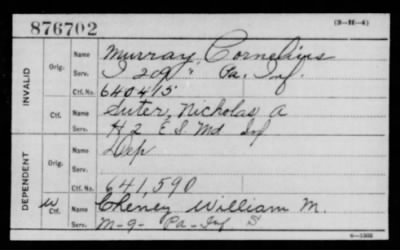 876702
(3—H—4)
INVALID
Orig.
Name Murray, Cornelius
Serv. I 209" Pa. Inf.
Ctf. No. 640415
Ctf.
Name Suter, Nicholas A
Serv. H 2 E S Md Inf
DEPENDENT
Orig.
Name Dep
Serv.
Ctf. No. 641,590
W
Ctf.
Name Cheney William M.
Serv. M-9- Pa-Inf S